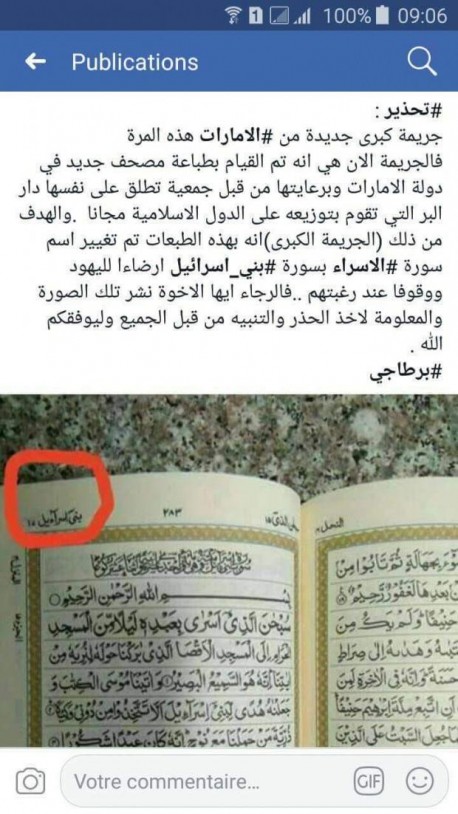 100% 09:06
Publications
#تحذير :
جريمة كبرى جديدة من #الامارات هذه المرة
فالجريمة الان هي انه تم القيام بطباعة مصحف جديد في
دولة الامارات وبرعايتها من قبل جمعية تطلق على نفسها دار
البر التي تقوم بتوزيعه على الدول الاسلامية مجانا .والهدف
من ذلك (الجريمة الكبرى)انه بهذه الطبعات تم تغيير اسم
سورة #الاسراء بسورة #بني_اسرائيل ارضاءا لليهود
ووقوفا عند رغبتهم ..فالرجاء ايها الاخوة نشر تلك الصورة
والمعلومة لاخذ الحذر والتنبيه من قبل الجميع وليوفقكم
الله .
#برطاجي
النحل
٢٨٣
بنی اسرآءیل ١٧
بسم الله الرحمن الرحيم
سبحن الذی اسری بعبده لیلا من المسجد
الحرام الی المسجد الاقصا الذی برکنا حوله لنریه من
ایتنا انه هو السمیع البصیر واتینا موسی الکتب و
جعلنه هدی لبنی اسرآءیل الا تتخذوا من دونی وکیلا
ذریة من حملنا مع نوح انه کان عبدا شکورا
Votre commentaire...
GIF